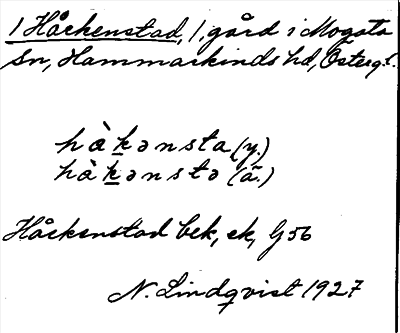 1 Håckenstad, 1, gård i Mogata
sn, Hammarkinds hd, Östergl.
hàkənsta (y.)
hàkənstə (ä.)
Håckenstad bek, ek, G 56
N. Lindqvist 1927